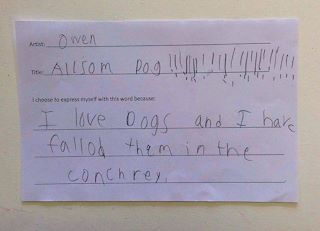 Artist: Owen
Title: Allsom Dog !!!!!!!!!!!!!!!!!!!!
I choose to express myself with this word because:
I love Dogs and I have
fallod them in the
conchrey.